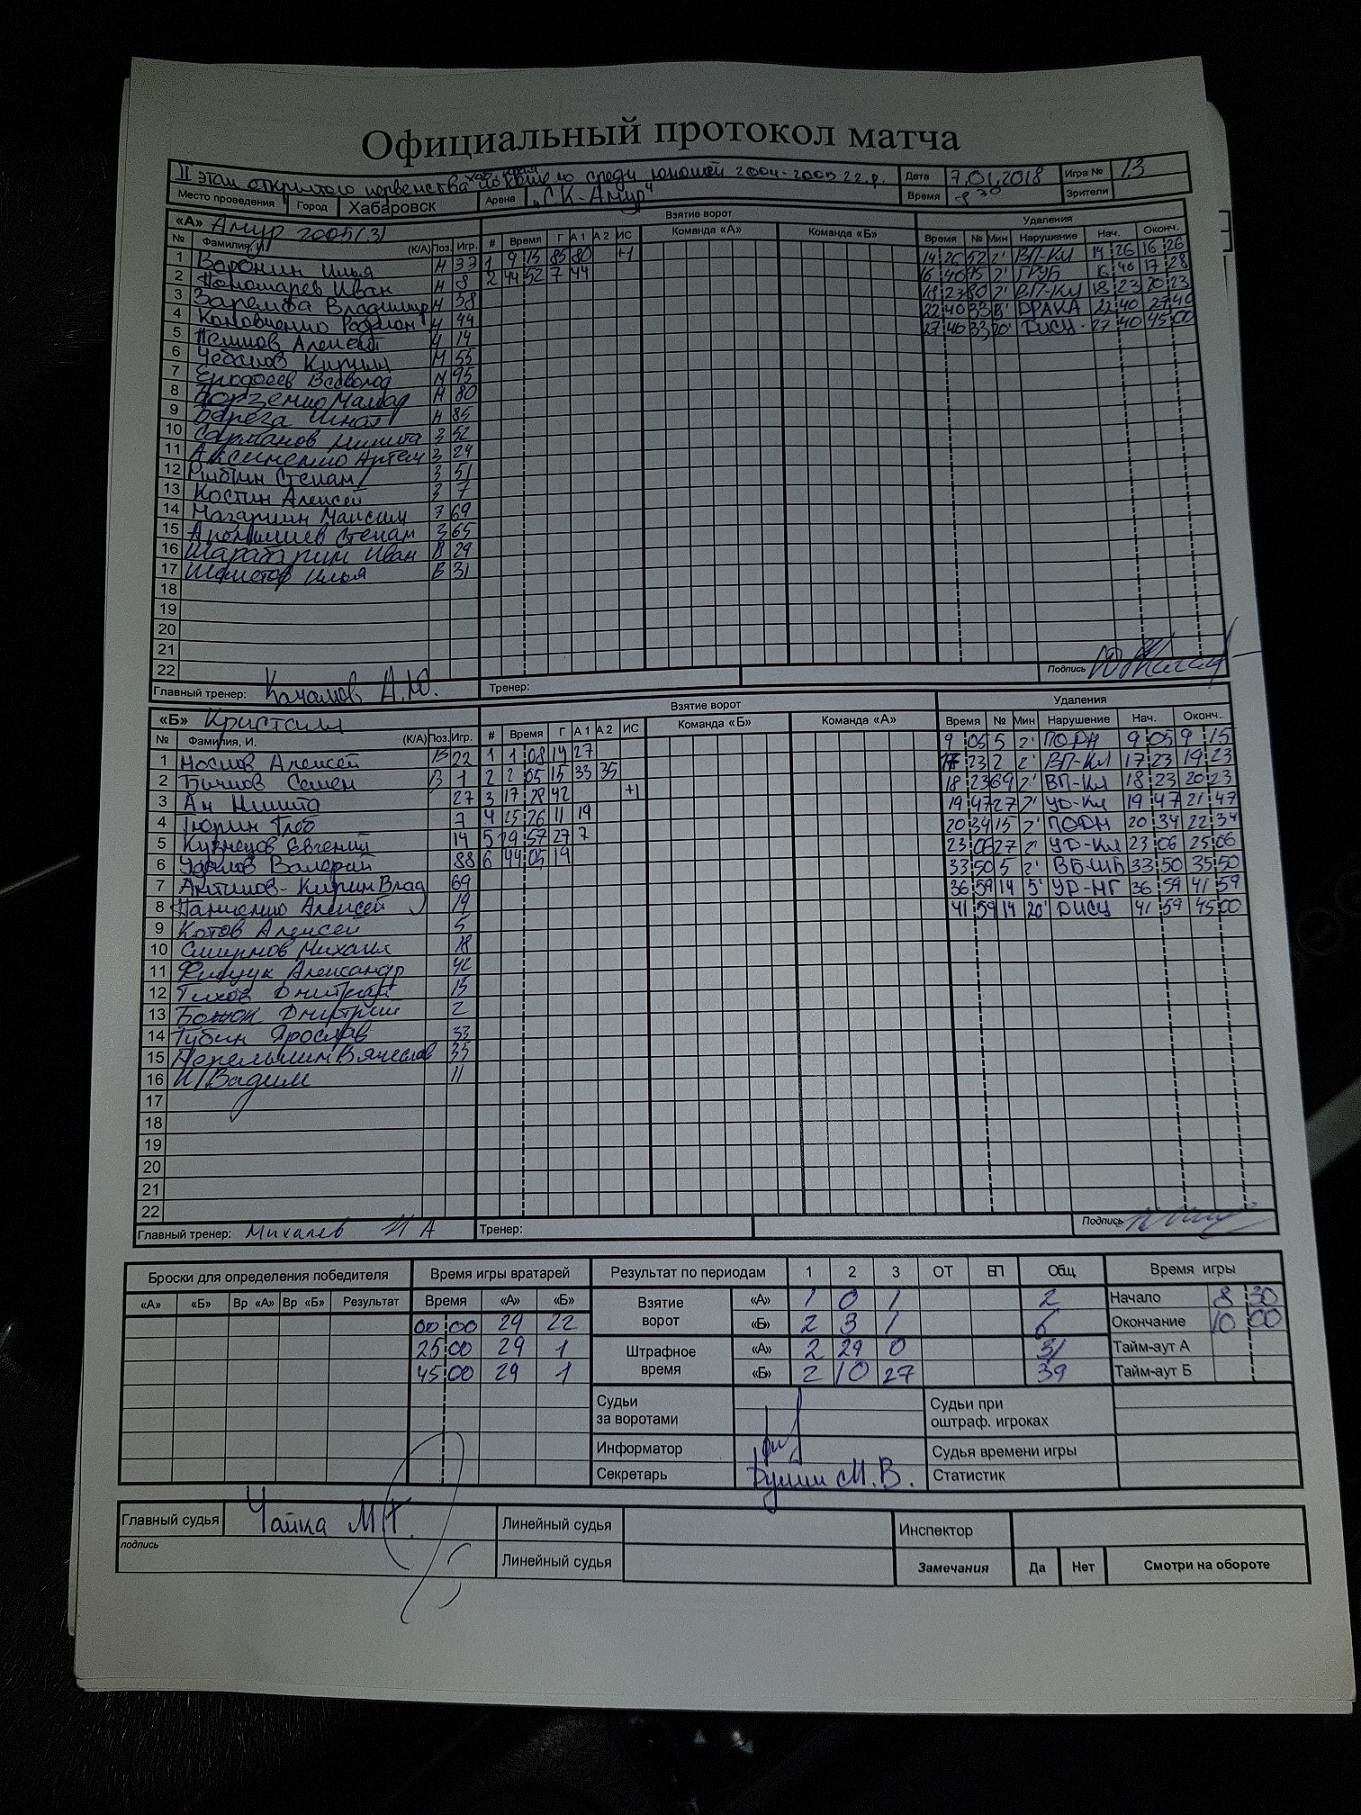 Официальный протокол матча
II этап открытого первенства по среди юношей 2004-2005 г.р. Дата 7.01.2018 Игра № 13
Место проведения Город Хабаровск Арена "СК-Амур" Время 8 30 Зрители
«А» Амур 2005 (3) Взятие ворот Удаления
№ Фамилия, И. (К/А) Поз. Игр. # Время Г А1 А2 ИС Команда «А» Команда «Б» Время № Мин Нарушение Нач. Оконч.
1 Воронин Илья Н 37 1 9 15 85 80 +1 14 26 52 2' ВП-КЛ 14 26 16 26
2 Пономарев Иван Н 8 2 44 52 7 44 16 40 95 2' ГРУБ 16 40 17 28
3 Заремба Владимир Н 58 18 23 80 2' ВП-КЛ 18 23 20 23
4 Коновченко Родион Н 44 22 40 33 5' ДРАКА 22 40 27 40
5 Алексей Н 14 27 40 33 20' ДИСЦ. 27 40 45 00
6 Чебанов Кирилл Н 55
7 Всеволод Н 95
8 Макар Н 80
9 Береза Игнат Н 85
10 Сарманов Никита З 52
11 Аксиненко Артем З 24
12 Рыбкин Степан З 51
13 Костин Алексей З 7
14 Макаркин Максим З 69
15 Степан З 65
16 Иван В 29
17 Илья В 31
18
19
20
21
22
Главный тренер: А.Ю. Тренер: Подпись
«Б» Кристалл Взятие ворот Удаления
№ Фамилия, И. (К/А) Поз. Игр. # Время Г А1 А2 ИС Команда «Б» Команда «А» Время № Мин Нарушение Нач. Оконч.
1 Носков Алексей В 22 1 1 08 19 27 9 05 5 2' ПОДН 9 05 9 15
2 Бычков Семен В 1 2 2 05 15 33 35 17 23 2 2' ВП-КЛ 17 23 19 23
3 Ан Никита 27 3 17 28 42 +1 18 23 69 2' ВП-КЛ 18 23 20 23
4 Тюрин Глеб 7 4 25 26 11 19 19 47 27 2' УД-КЛ 19 47 21 47
5 Кузнецов Евгений 14 5 29 57 27 7 20 34 15 2' ПОДН 20 34 22 34
6 Валерий 88 6 44 05 19 23 06 27 2' УД-КЛ 23 06 25 06
7 Антипов-Кирин Влад 69 33 50 5 2' ВБ-ШБ 33 50 35 50
8 Панченко Алексей 19 36 59 14 5' УР-НГ 36 59 41 59
9 Котов Алексей 5 41 59 14 20' ДИСЦ 41 59 45 00
10 Смирнов Михаил
11 Александр 42
12 Тихов Дмитрий 15
13 Божок Дмитрий 2
14 Губин Ярослав 33
15 Перепелкин Вячеслав 35
16 Вадим 11
17
18
19
20
21
22
Главный тренер: Михалев И А Тренер: Подпись
Броски для определения победителя Время игры вратарей Результат по периодам 1 2 3 ОТ БП Общ. Время игры
«А» «Б» Вр «А» Вр «Б» Результат Время «А» «Б» Взятие ворот «А» 1 0 1 2 Начало 8 30
00 00 29 22 «Б» 2 3 1 6 Окончание 10 00
25 00 29 1 Штрафное время «А» 2 29 0 31 Тайм-аут А
45 00 29 1 «Б» 2 10 27 39 Тайм-аут Б
Судьи за воротами Судьи при оштраф. игроках
Информатор Судья времени игры
Секретарь М.В. Статистик
Главный судья Чайка М.Г. Линейный судья Инспектор
подпись Линейный судья Замечания Да Нет Смотри на обороте